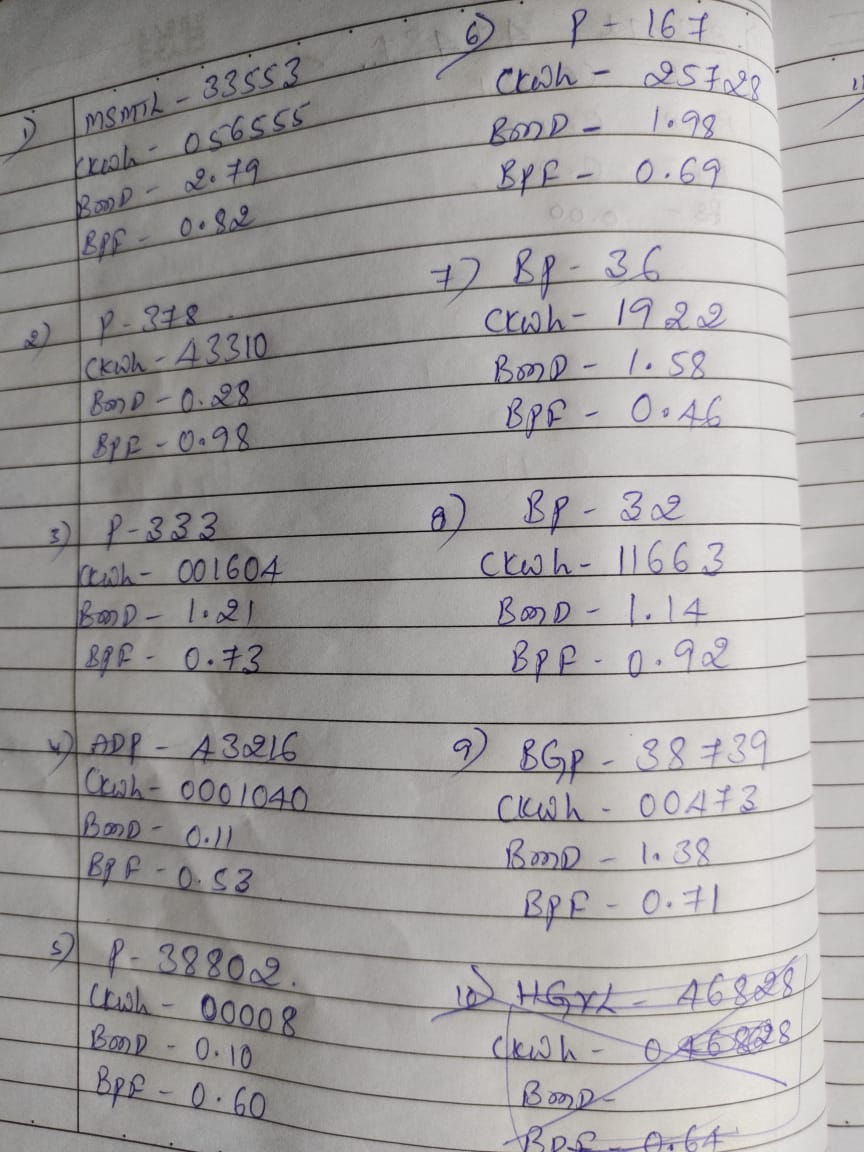 1) MSMTL - 33553
CKWh - 056555
BMD - 2.79
BPF - 0.82
2) P - 378
CKWh - A3310
BMD - 0.28
BPF - 0.98
3) P - 333
CKWh - 001604
BMD - 1.21
BPF - 0.73
4) ADP - A3216
CKWh - 0001040
BMD - 0.11
BPF - 0.53
5) P - 38802.
CKWh - 00008
BMD - 0.10
BPF - 0.60
6) P - 167
CKWh - 25728
BMD - 1.98
BPF - 0.69
7) BP - 36
CKWh - 1922
BMD - 1.58
BPF - 0.46
8) BP - 32
CKWh - 11663
BMD - 1.14
BPF - 0.92
9) BGP - 38739
CKWh - 00473
BMD - 1.38
BPF - 0.71
10) - 46828
CKWh -
BMD -
BPF - 0.64